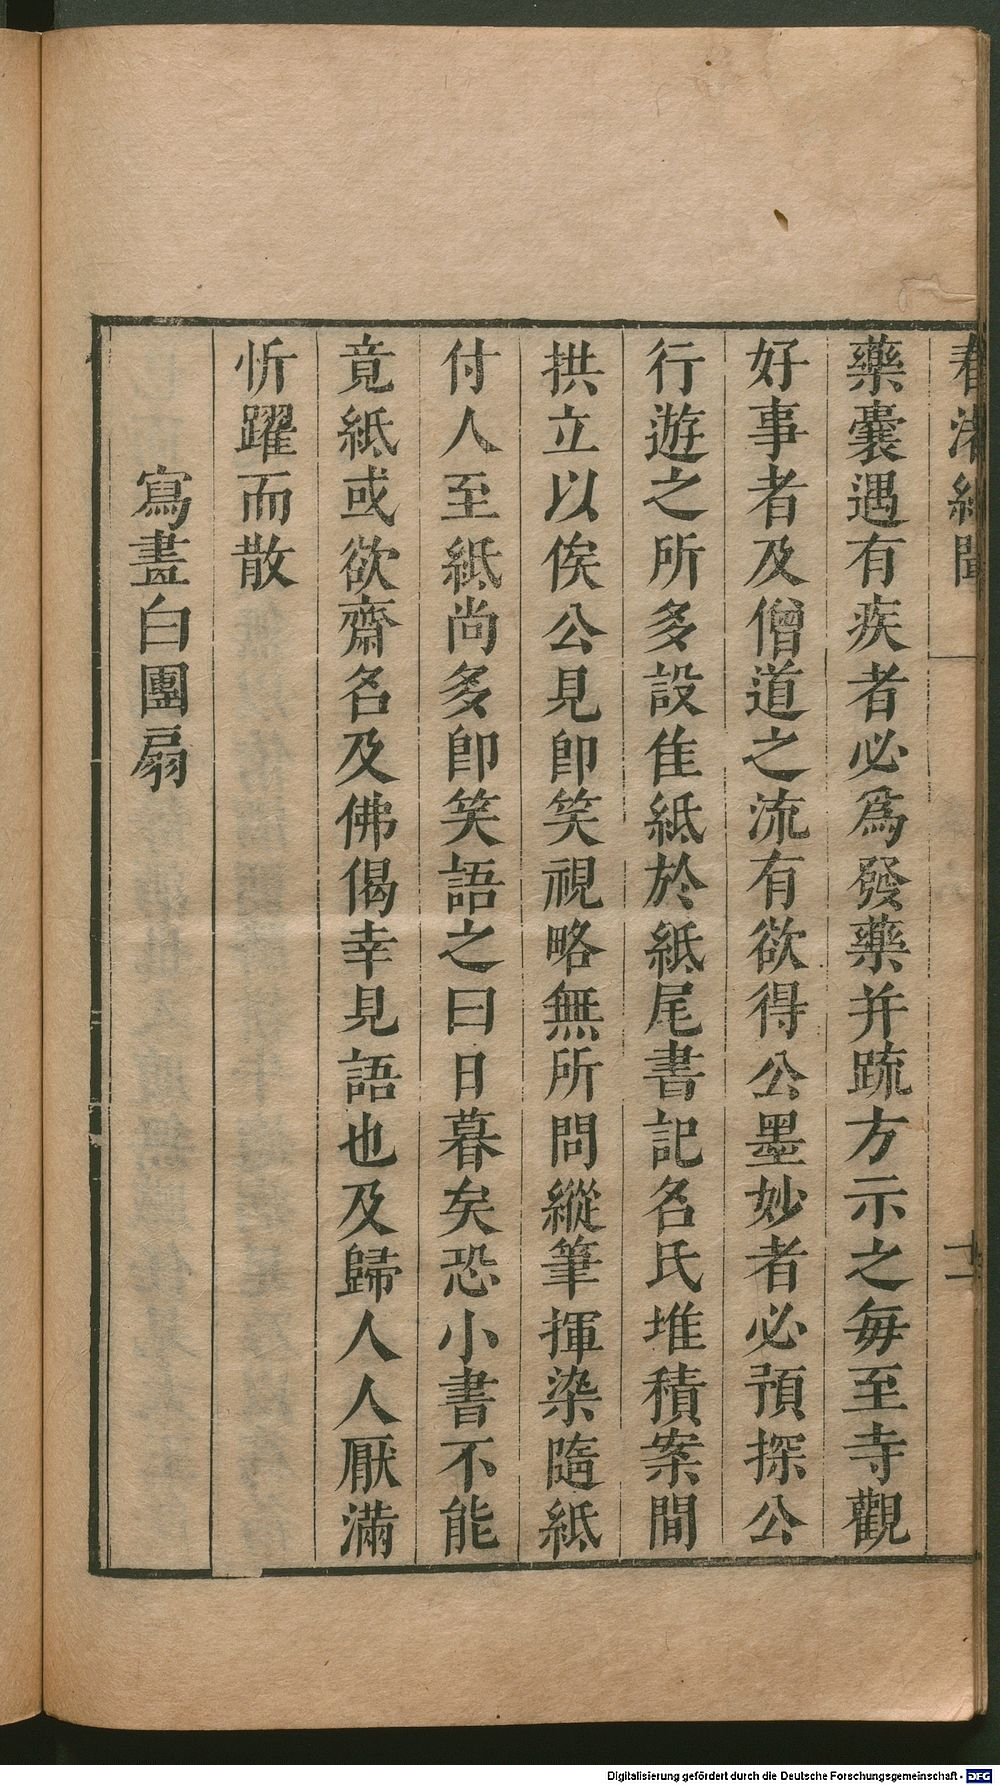 春渚紀聞
藥囊遇有疾者必爲發藥并疏方示之每至寺觀
好事者及僧道之流有欲得公墨妙者必預探公
行遊之所多設佳紙於紙尾書記名氏堆積案間
拱立以俟公見卽笑視略無所問縱筆揮染隨紙
付人至紙尚多卽笑語之曰日暮矣恐小書不能
竟紙或欲齋名及佛偈幸見語也及歸人人厭滿
忻躍而散
寫畫白團扇
Digitalisierung gefördert durch die Deutsche Forschungsgemeinschaft - DFG